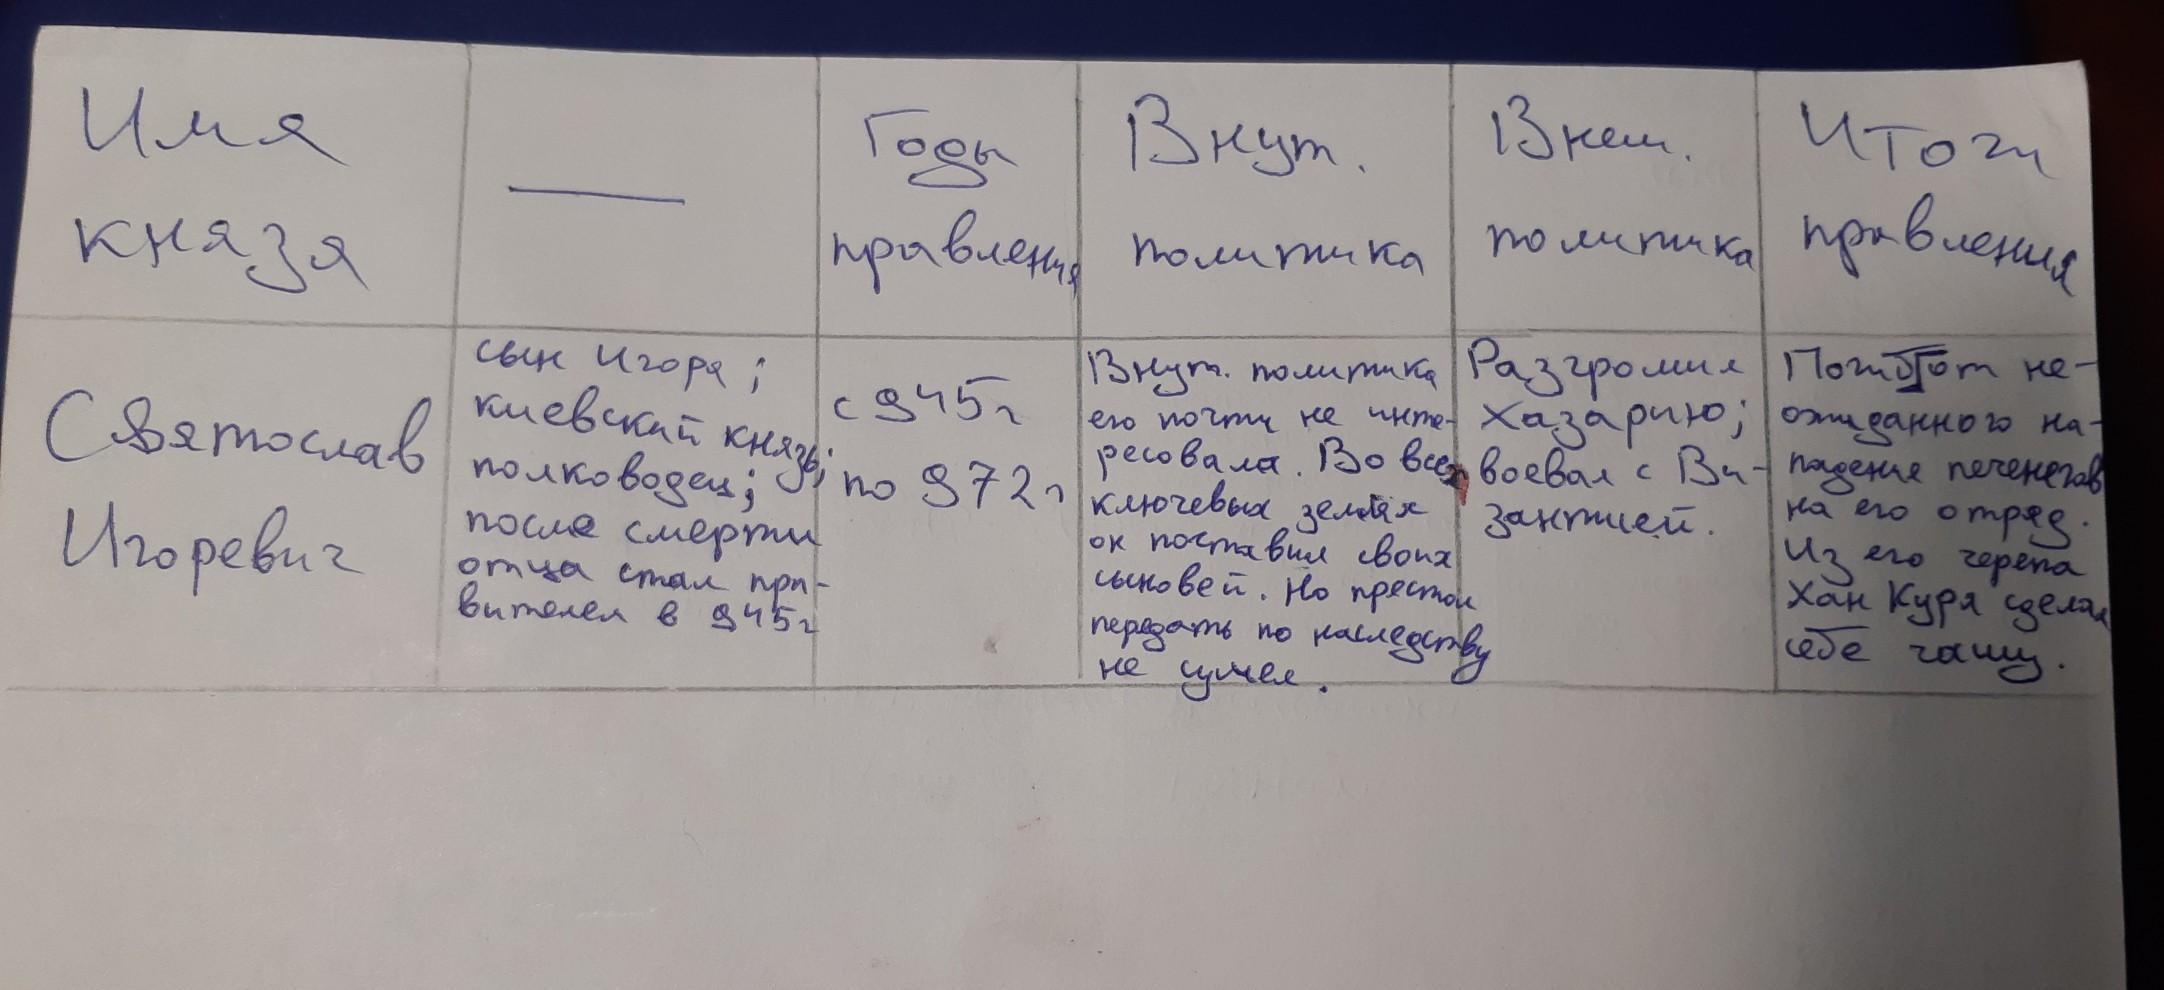 Имя
князя
Годы
правления
Внут.
политика
Внеш.
политика
Итоги
правления
Святослав
Игоревич
сын Игоря;
киевский князь;
полководец;
после смерти
отца стал пра-
вителем в 945г
с 945г
по 972г
Внут. политика
его почти не инте-
ресовала. Во всех
ключевых землях
он поставил своих
сыновей. Но престол
передать по наследству
не сумел.
Разгромил
Хазарию;
воевал с Ви-
зантией.
Погиб от не-
ожиданного на-
падение печенегов
на его отряд.
Из его черепа
Хан Куря сделал
себе чашу.